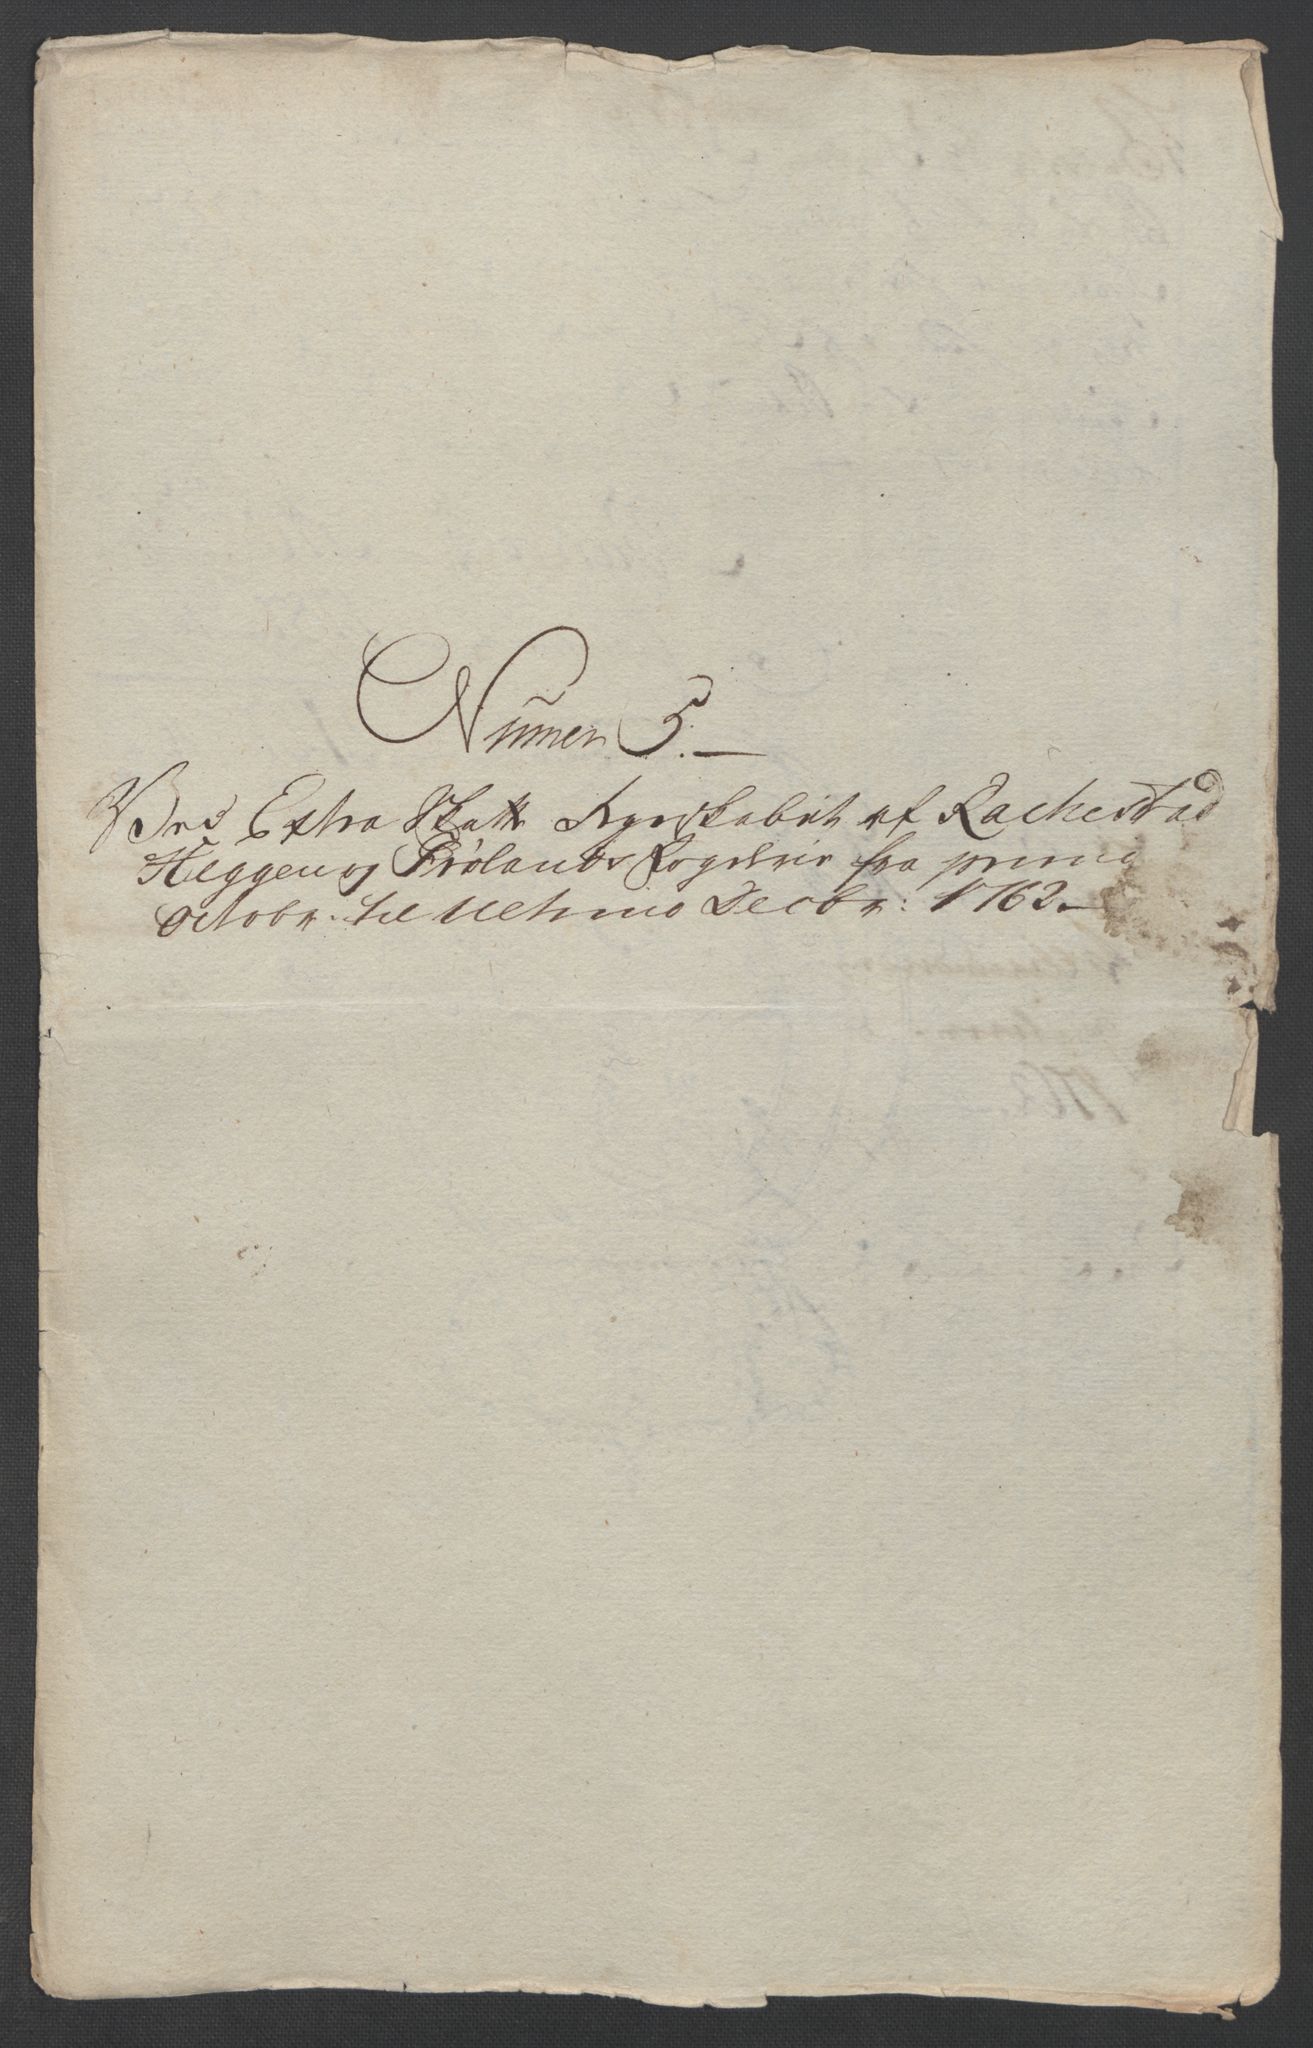 Numer 5.
Ved Extra Skatte Regnskabet af Rackestad
Heggen og Frølands Fogderie fra primo
Octobr: til ultimo Decbr: 1762.